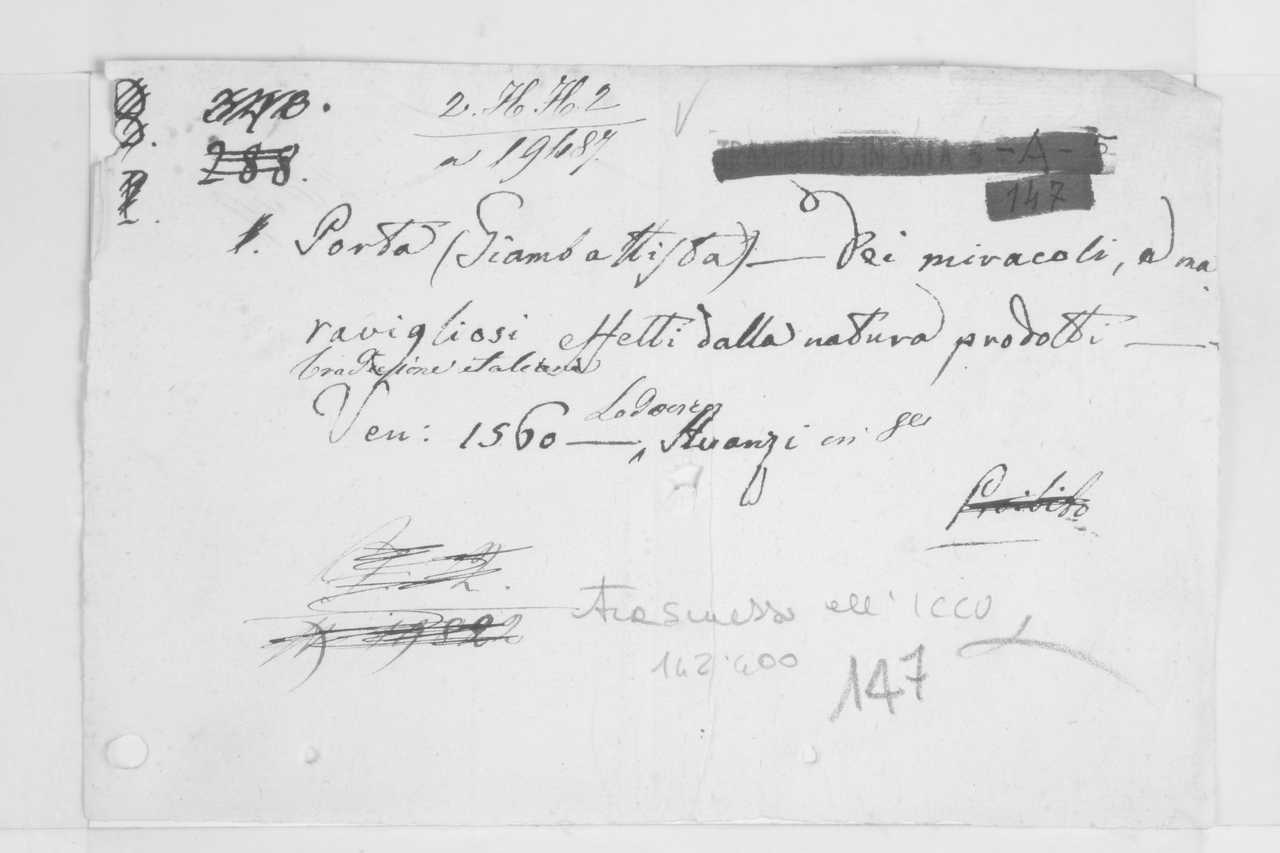 2. H. H. 2
288.
TRASFERITO IN SALA - A - 5
147
1. Porta (Giambattista) — Dei miracoli, e ma
ravigliosi effetti dalla natura prodotti —
traduzione italiana
Lodovico
Ven: 1560 —, Avanzi in 8º
Proibito
Trasmessa all'ICCU
142.400
147